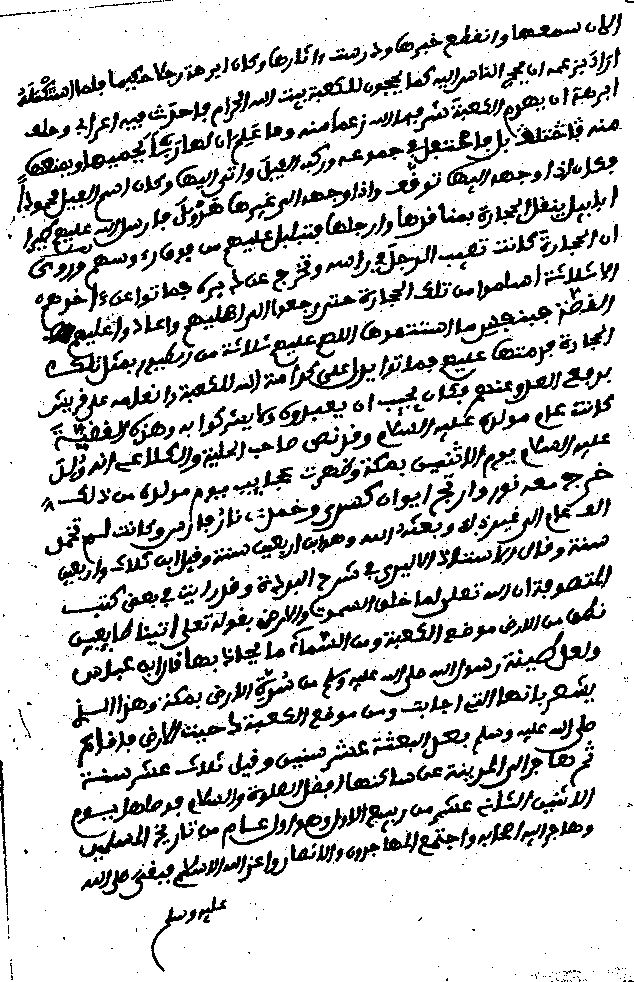 الان سمعها وانقطع خبرها وذرست واثارها وكان ابرهة رجلا حكيما فلما استكمله
اراد بزعمه ان يحج الناس اليه كما يحجون للكعبة بيت الله الحرام فاحدث فيه اعرابي وحلف
ابرهة ان يهدم الكعبة شرفها الله زعما منه وما علم ان لها ربا يحميها ويمنعها
منه في جموعه وركب الفيل واتى اليها وكان اسم الفيل محمودا
فكان اذا وجهه اليها توقف واذا وجهه الى غيرها هرول فارسل الله عليهم طيرا
ابابيل ينقل الحجارة بمنافرها وارجلها فتبلبل عليهم من فوق رءوسهم وروى
ان الحجارة كانت تصيب الرجل في راسه وتخرج عن دبره فماتوا عن ءاخرهم
الا ثلاثة اصابوا من تلك الحجارة حتى رجعوا الى اهليهم واعادوا عليهم
القصة فبنفس ما استتموها اطلع عليهم ثلاثة من بمثل تلك
الحجارة فرمتها عليهم فماتوا على كرامة الله للكعبة وانعامه على قريش
برفع العدو عنهم فكان يجب ان يعبدوه ولا يشركوا به وهذه القصة
كانت عام مولده عليه السلام وقد نص صاحب الحلية والكلاعي انه ولد
عليه السلام يوم الاثنين بمكة وظهرت عجايب يوم مولده من ذلك
خرج معه نور وارتج ايوان كسرى وخمدت نار فارس وكانت لم تخمد
الف عام الى غير ذلك وبعثه الله وهو ابن اربعين سنة وقيل ابن ثلاث واربعين
سنة وقال الاستاذ الالبيري في شرح البردة وقد رايت في بعض كتب
المتصوفة ان الله تعالى لما خلق السموات والارض بقوله تعلى اتينا طايعين
نطق من الارض موضع الكعبة ومن السماء ما يحاذ بها قال ابن عباس
ولعل طينة رسول الله صلى الله عليه وسلم من سرة الارض بمكة وهذا
يشعر بانها التي اجابت ومن موضع الكعبة دحيت الارض فاقام
صلى الله عليه وسلم بعد البعثة عشر سنين وقيل ثلاث عشر سنة
ثم هاجر الى المدينة على ساكنها افضل الصلوة والسلام فدخلها يوم
الاثنين الثانية عشر من ربيع الاول وهو اول عام من تاريخ المسلمين
وهاجر اليه اصحابه واجتمع المهاجرون والانصار واعز الله الاسلام فبقى صلى الله
عليه وسلم